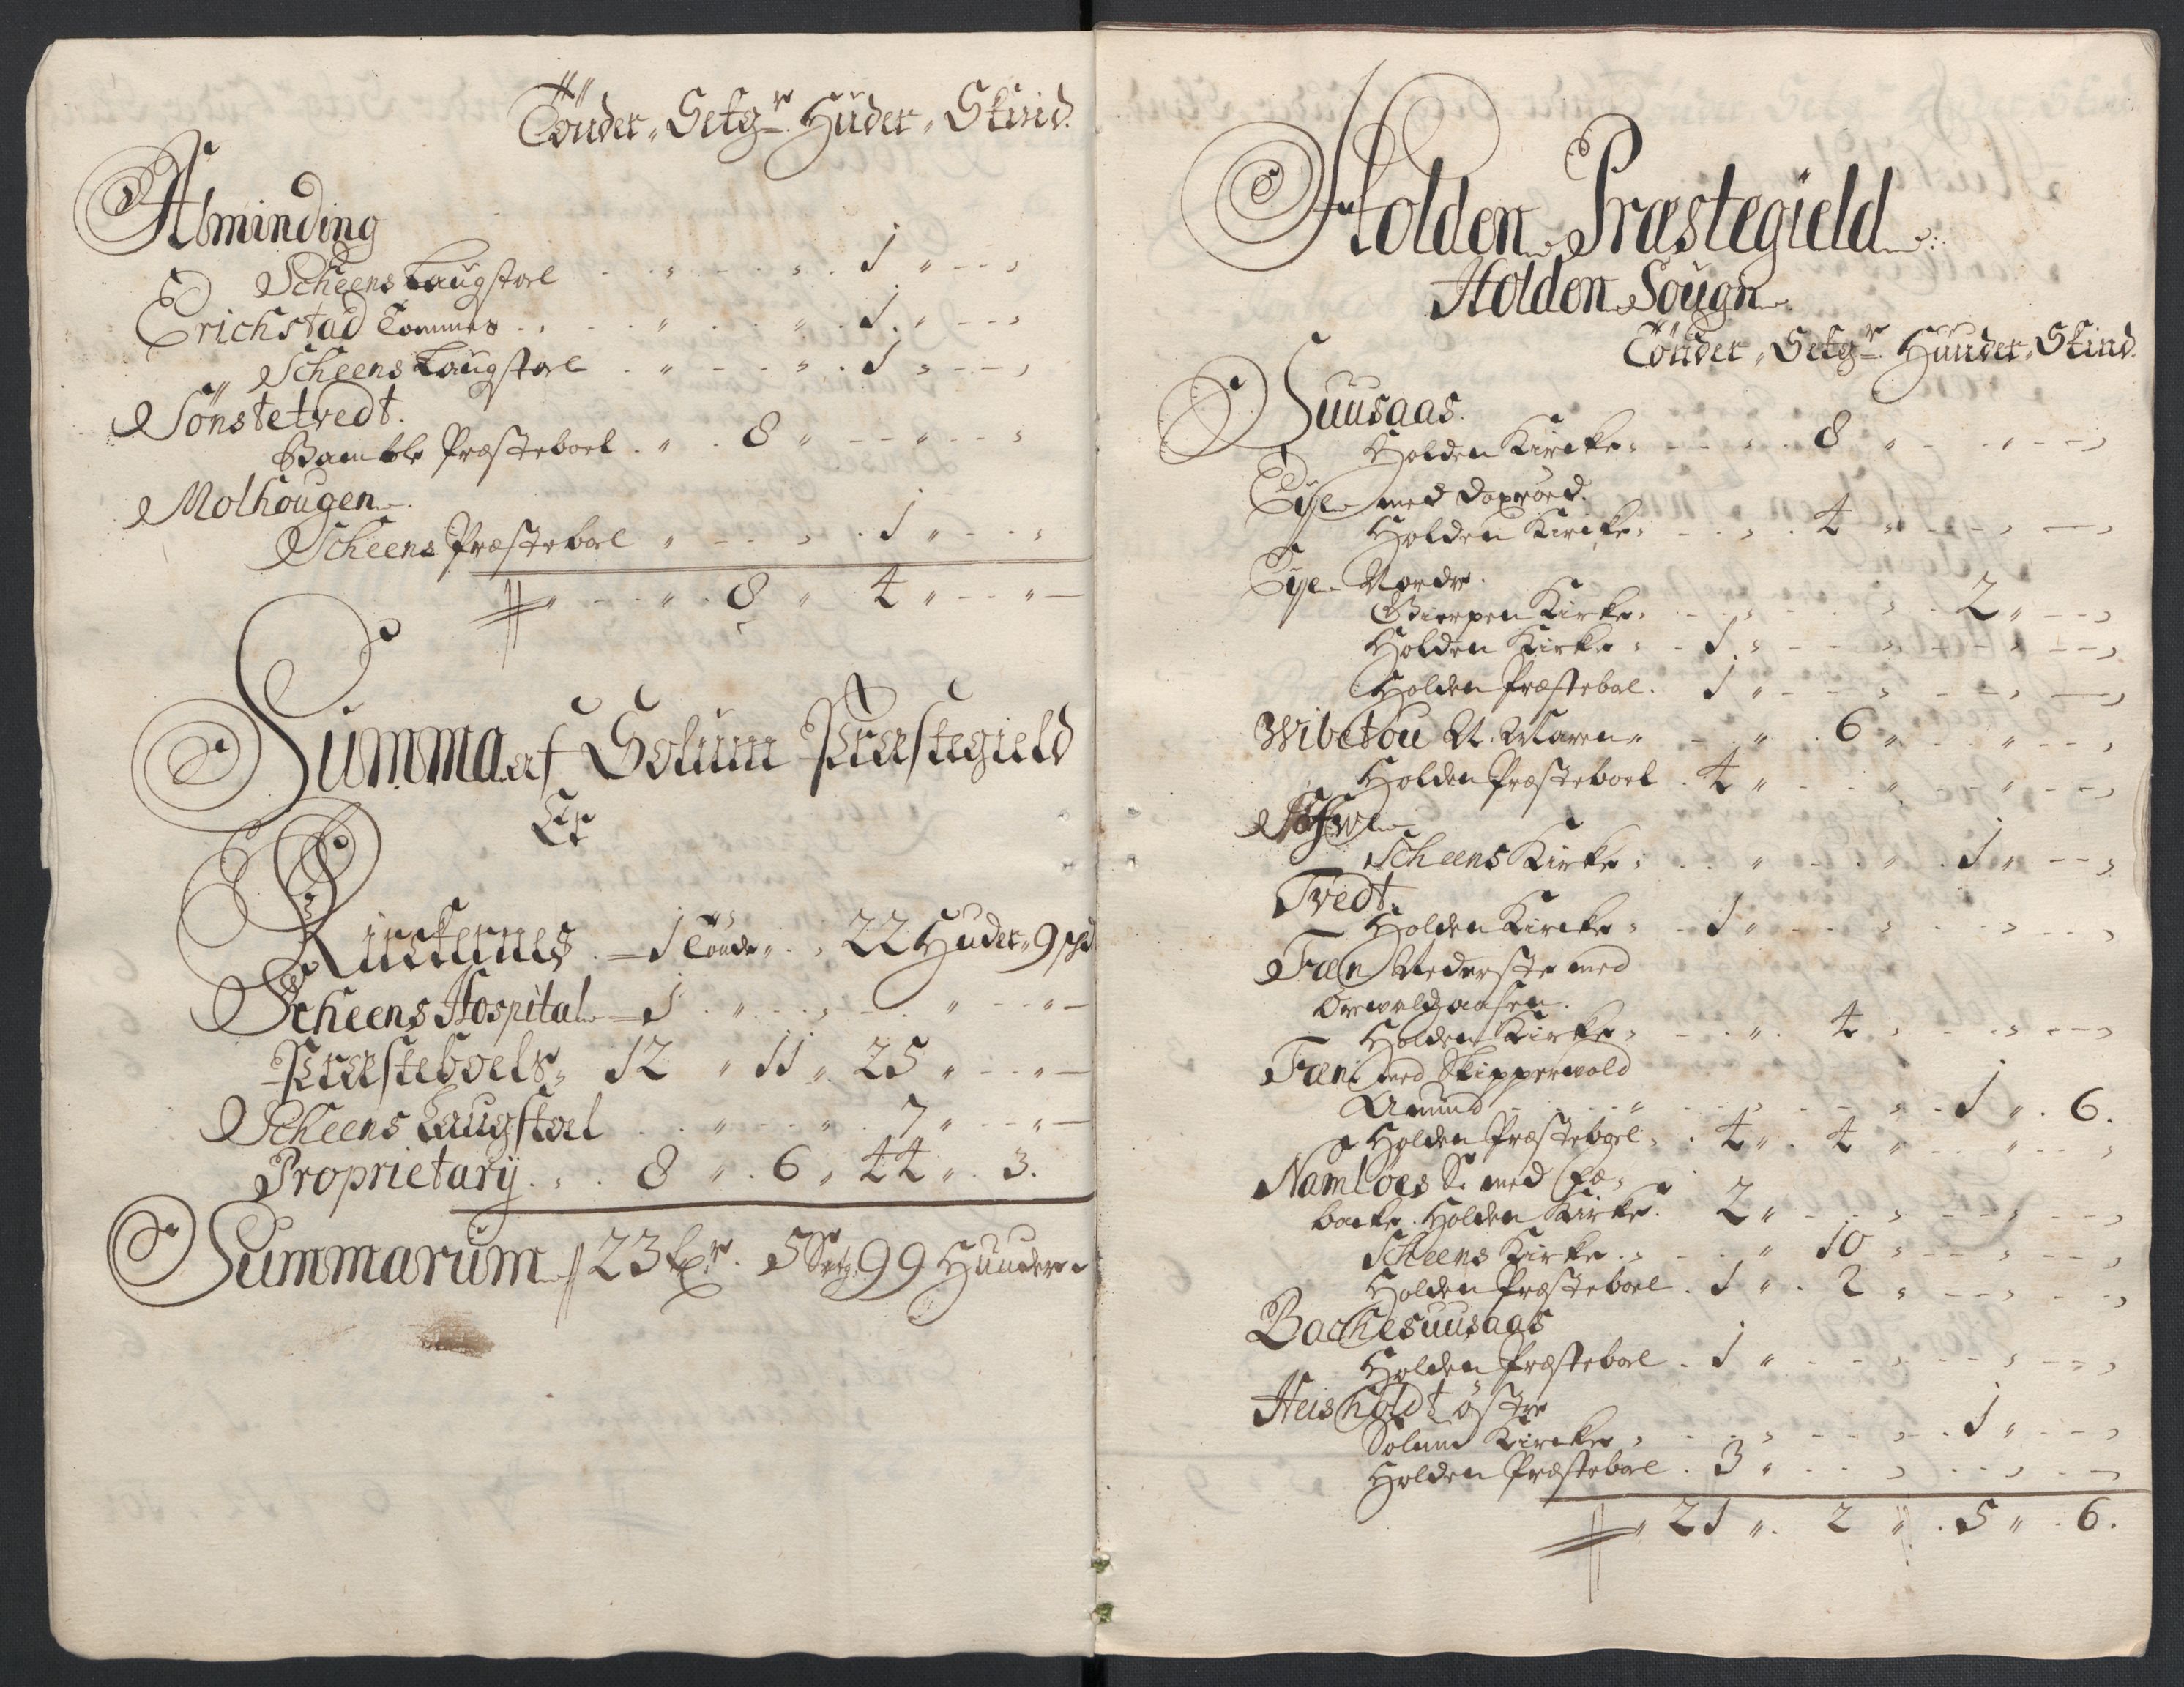 Tönder „ Setgr Hüder „ Skind.
Alminding
Scheens Laugstoel . „ . . „ . 1 „ - - „
Erichstad Tommes . . „ . . „ . 1 . „ - - „
Scheens Laugstoel . „ - . „ . 1 „ - - „
Sönstetvedt.
Bamble Præsteboel . „ . 8 „ - - „ - - „
Molhougen
Scheens Præsteboel „ - . „ . 1 „ - . „
„ - . „ . 8 „ 4 „ - - „ -
Summa af Solum Præstegield
Er
Kirckernes . - 1 Tönde „ . „ 22 Huder „ 9 sk
Scheens Hospital - 1 . „ . . „ - . „ - - „ -
Præsteboels „ 12 „ 11 „ 25 „ - . „ -
Scheens Laugstoel . . „ . . „ . 7 „ - . „ -
Proprietary . „ . 8 „ . 6 „ 44 „ . 3.
Summarum 23 tr. 5 Setg 99 Huuder
Holden Præstegield
Holden Sougn
Tönder „ Setgr Huuder „ Skind.
Suusaas.
Holden Kircke „ - - „ . 8 „ - . „ - - „
Eye med
Holden Kircke „ - . „ . 4 „ - - „ - „
Eye Nordre.
Gierpen Kirke „ - . „ - . „ . 2 „ - - „
Holden Kirke „ - 1 . „ - - „ - - „ - - „
Holden Præsteboel . 1 „ - - „ - - „ - „
Wibetou N. Maren „ - . „ . 6 „ . . „ - - „
Holden Præsteboel . 4 „ . . „ . . „ - - „
Scheens Kirke „ . . „ - . „ . 1 „ - - „
Tvedt.
Holden Kircke „ . 1 „ . . „ . . „ - . „
Fæn Nederste med
Holden Kirke „ - . „ . 4 „ . . „ - - „
Fæn med Skipperwold
Amund . . „ . . „ . . „ . 1 „ . 6.
Holden Præsteboel „ . 4 „ . 4 „ . . „ . . „
Namløes S. med Fæ„
backe. Holden Kirke. 2 „ - . „ - - „ - - „
Scheens Kirke . „ - . „ 10 „ - - „ - - „
Holden Præsteboel . 1 „ . 2 „ - - „ - - „
Bachesuusaas
Holden Præsteboel . 1 „ - . „ - - „ - - „
Heisholdt östre
Solum Kircke „ . - . „ - - „ . 1 „ - - „
Holden Præsteboel . 3 „ . . „ . . „ . - „
„ 21 „ . 2 „ . 5 „ . 6.